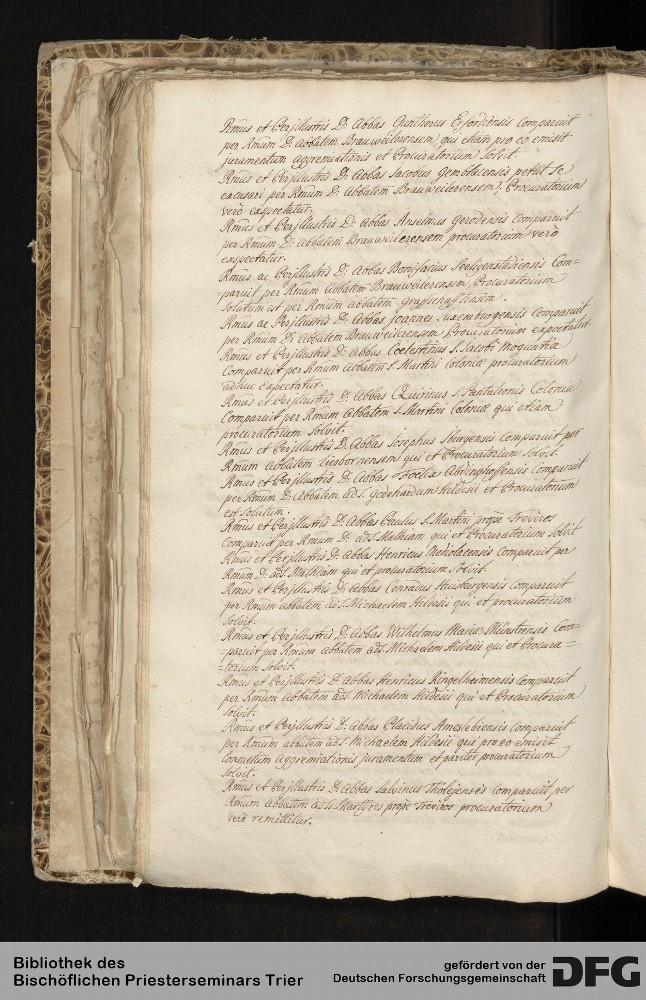 Rmus et Perjllustris D: Abbas Guntherus Erfordiensis Comparuit
per Rmum D: Abbatem Brauweilerensem qui etiam pro eo emisit
juramentum aggremiationis et Procuratorium Solvit.
Rmus et Perjllustris D: Abbas Jacobus Gemblacensis petiit se
excusari per Rmum D: Abbatem Brauweilerensem, Procuratorium
verò exspectatur.
Rmus et Perjllustris D: Abbas Anselmus Gerodensis comparuit
per Rmum D: Abbatem Brauweilerensem procuratorium verò
exspectatur.
Rmus ac Perjllustris D: Abbas Bonifacius Seeligenstadiensis Com=
=paruit per Rmum Abbatem Brauweilerensem, Procuratorium
Solutum est per Rmum abbatem Grafschaffensem.
Rmus ac Perjllustris D: Abbas Joannes Luxemburgensis Comparuit
per Rmum D: Abbatem Brauweilerensem, Procuratorium expectatur.
Rmus et Perjllustris D: Abbas Coelestinus S. Jacobi Moguntiæ
Comparuit per Rmum Abbatem S. Martini Coloniæ procuratorium
adhuc expectatur.
Rmus et Perjllustris D: Abbas Quirinus S. Pantaleonis Coloniæ
Comparuit per Rmum Abbatem S. Martini Coloniæ qui etiam
procuratorium Solvit.
Rmus et Perjllustris D: Abbas Josephus Iburgensis Comparuit per
Rmum Abbatem Liesbornensem qui et Procuratorium Solvit.
Rmus et Perjllustris D: Abbas Foelix Abdinghoffensis Comparuit
per Rmum D: Abbatem ad S. Godehardum Hildesii et Procuratorium
est Solutum.
Rmus et Perjllustris D: Abbas Paulus S. Martini prope Treviros
Comparuit per Rmum D: ad S. Mathiam qui et Procuratorium Solvit
Rmus et Perjllustris D: Abbas Henricus Mediolacensis Comparuit per
Rmum D: ad S. Mathiam qui et procuratorium Solvit.
Rmus et Perjllustris D: abbas Conradus Huisburgensis comparuit
per Rmum abbatem ad S. Michaelem Hildesii qui et procuratorium
Solvit.
Rmus et Perjllustris D: Abbas Wilhelmus Mariæ Münstrensis Com=
=paruit per Rmum abbatem ad S. Michaelem Hildesii qui et Procura=
=torium Solvit.
Rmus et Perjllustris D: Abbas Henricus Ringelheimensis Comparuit
per Rmum Abbatem ad S. Michaelem Hildesii qui et Procuratorium
Solvit.
Rmus et Perjllustris D: abbas Placidus Amerlebiensis Comparuit
per Rmum abbatem ad S. Michaelem Hildesii qui pro eo emisit
Consuetum aggremiationis juramentum et pariter procuratorium
Solvit.
Rmus et Perjllustris D: Abbas Salvinus Tholejensis Comparuit per
Rmum Abbatem ad S. Martyres prope Treviros procuratorium
verò remittitur.
Bibliothek des
Bischöflichen Priesterseminars Trier
gefördert von der
Deutschen Forschungsgemeinschaft
DFG